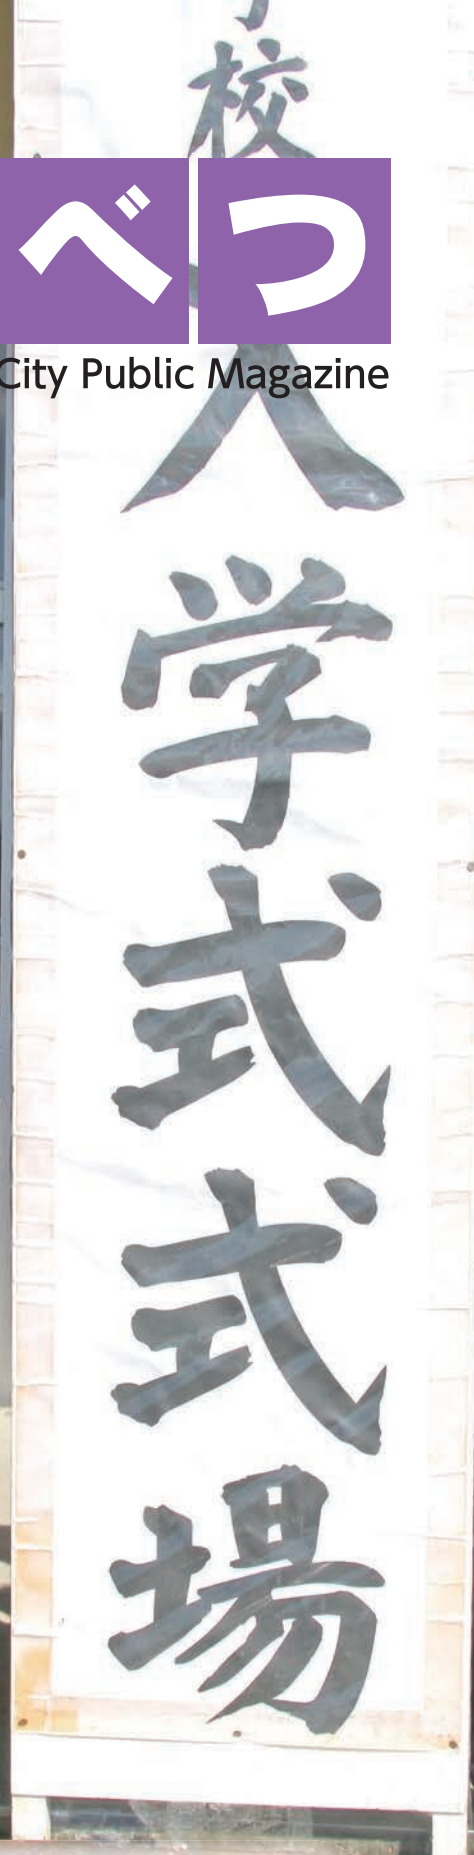 校
べつ
City Public Magazine
入学式式場